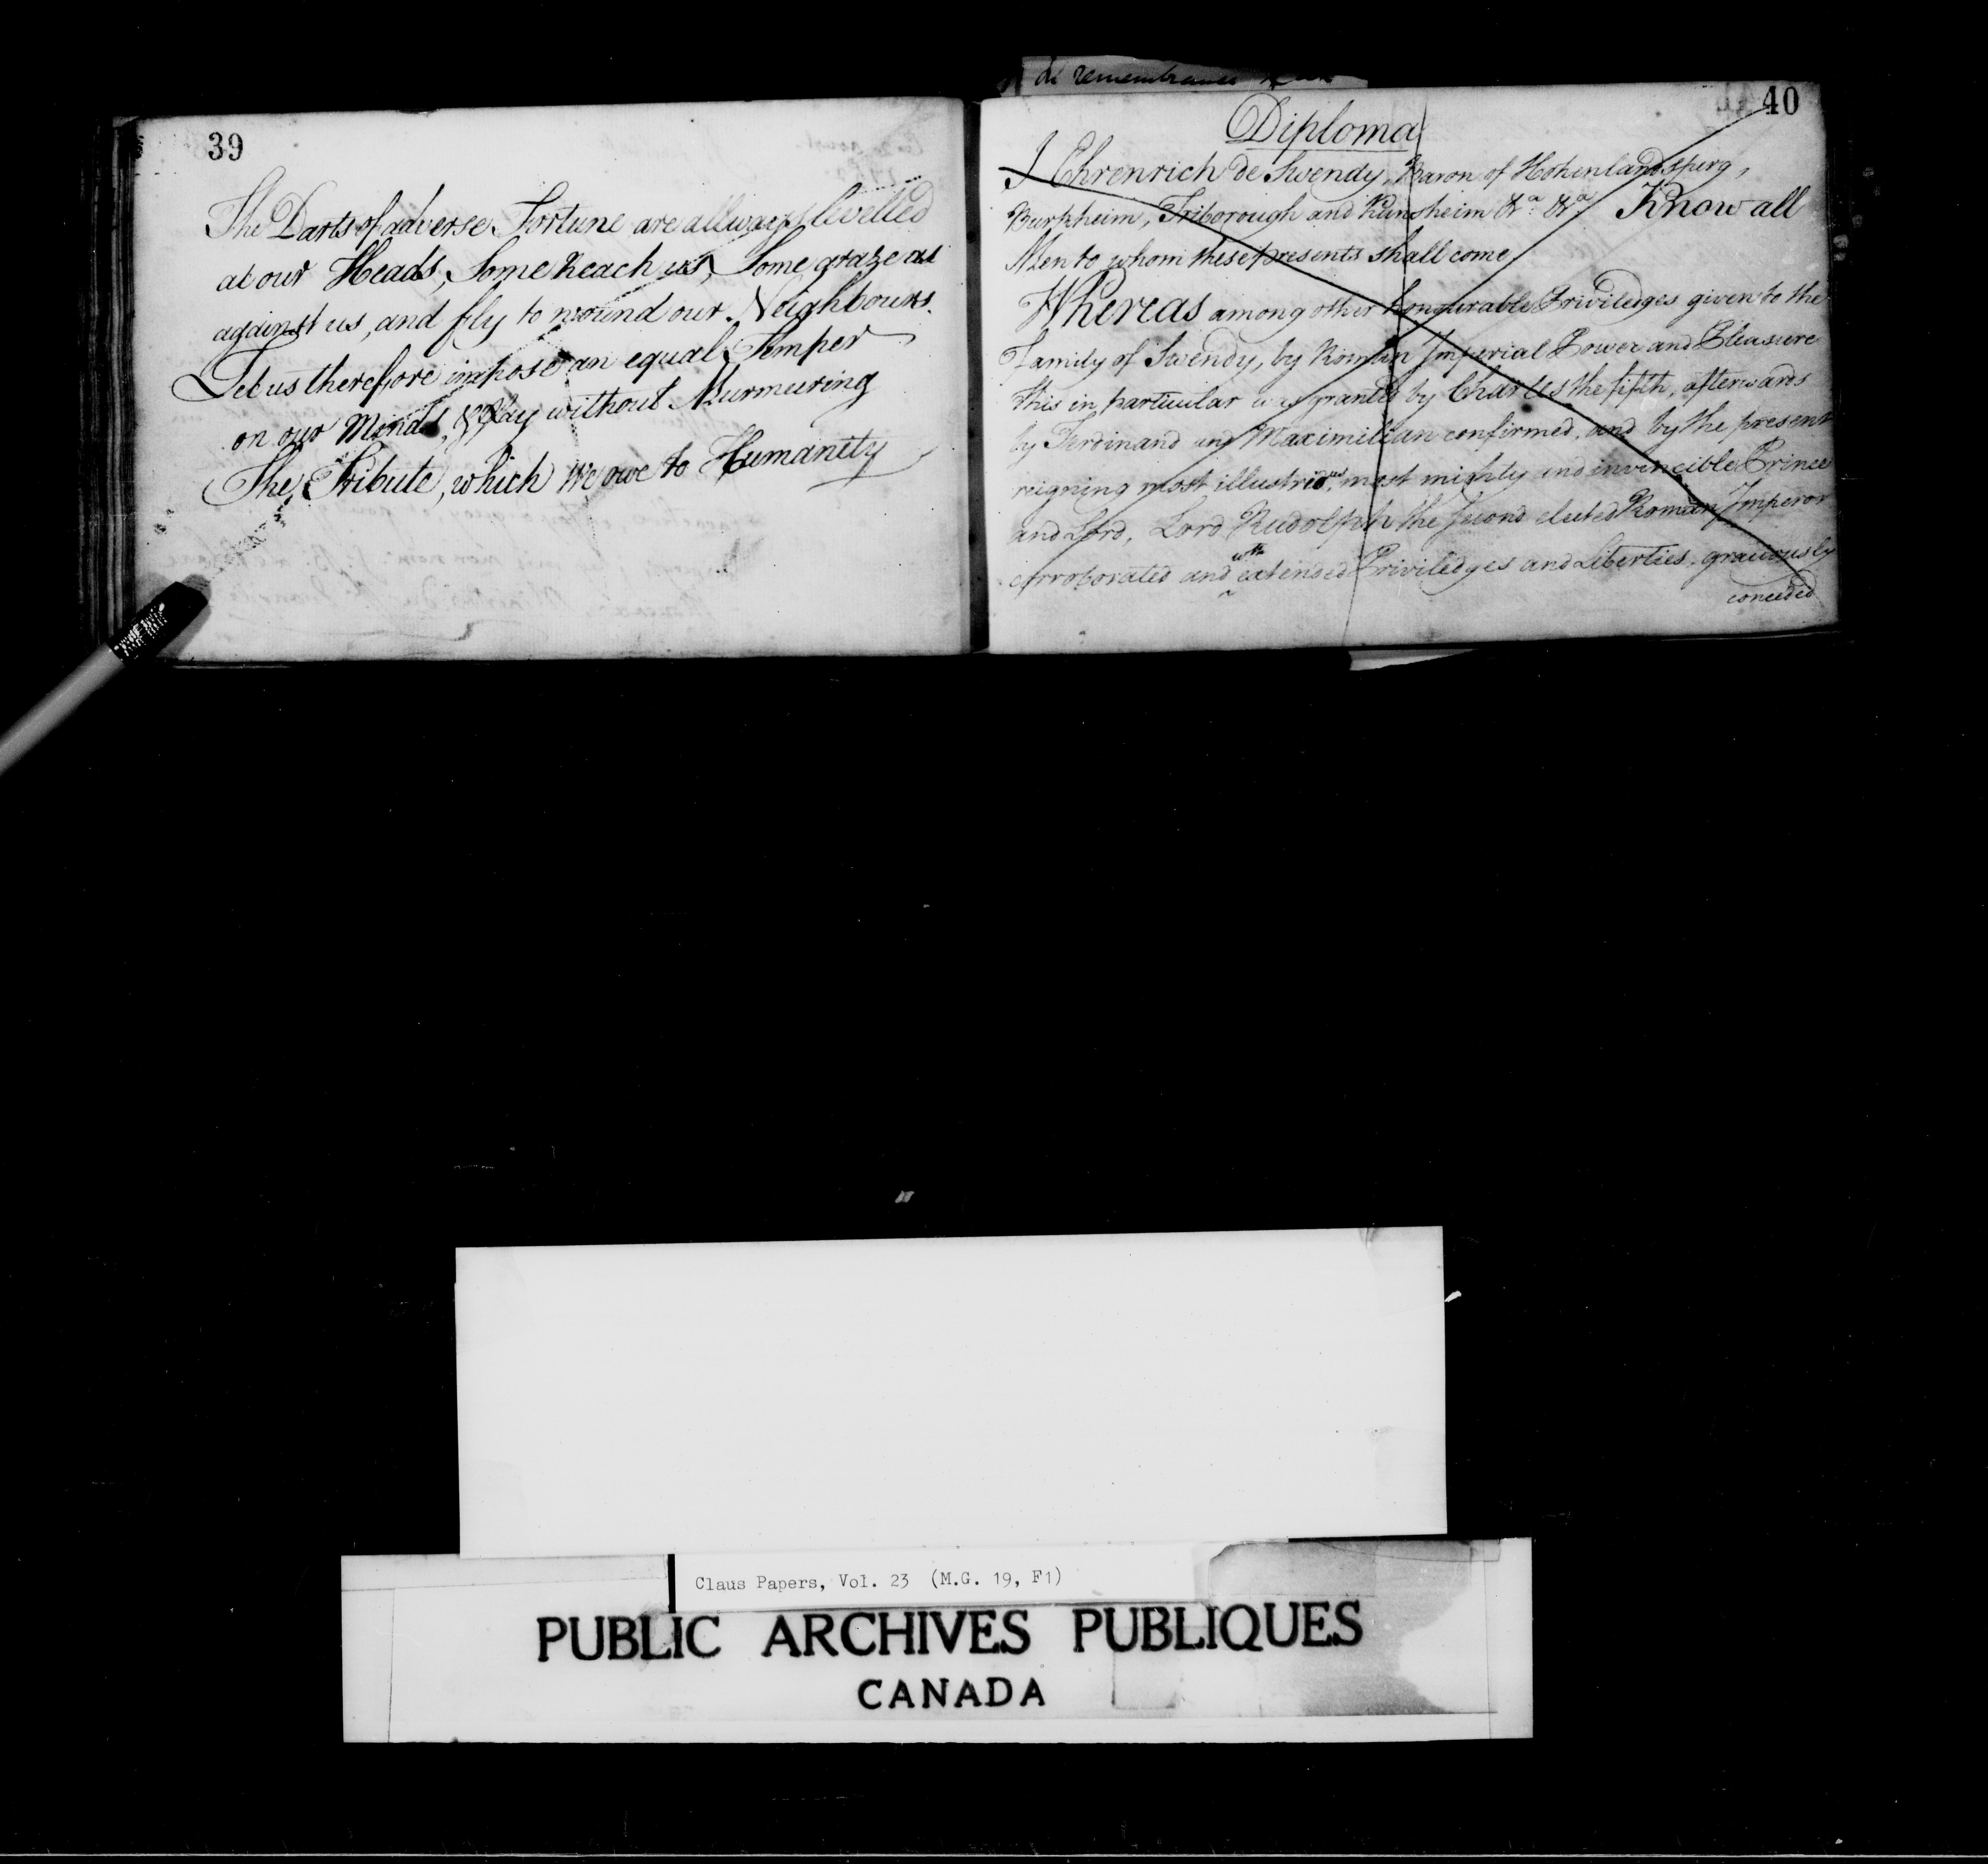 39
The Darts of adverse Fortune are allways levelled
at our Heads, Some Reach us, Some graze as
against us, and fly to wound our Neighbours.
Let us therefore impose an equal Temper
on our Minds, & Pay without Murmuring
The Tribute, which We owe to Humanity
remembrance
40
Diploma
I Ehrenrich de Swendy, Baron of Hohenlandsperg,
Burkheim, Triborough and Kunsheim &a. &a. Know all
Men to whom these presents shall come.
Whereas among other honourable Priviledges given to the
Family of Swendy, by Roman Imperial Power and Pleasure
this in particular was granted by Charles the fifth, afterwards
by Ferdinand and Maximilian confirmed, and by the present
reigning most illustrious, most mighty and invincible Prince
and Lord, Lord Rudolph the second elected Roman Imperor
corroborated and wth extended Priviledges and Liberties, graciously
conceded
Claus Papers, Vol. 23 (M.G. 19, F1)
PUBLIC ARCHIVES PUBLIQUES
CANADA